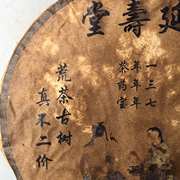 延壽堂
一三七
年年年
茶药宝
荒茶古树
真不二价